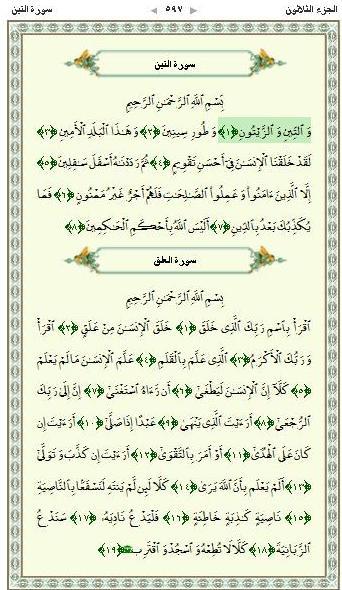 الجزء الثلاثون ٥٩٧ سورة التين
سورة التين
بِسْمِ ٱللَّهِ ٱلرَّحْمَٰنِ ٱلرَّحِيمِ
وَٱلتِّينِ وَٱلزَّيْتُونِ ﴿١﴾ وَطُورِ سِينِينَ ﴿٢﴾ وَهَٰذَا ٱلْبَلَدِ ٱلْأَمِينِ ﴿٣﴾
لَقَدْ خَلَقْنَا ٱلْإِنسَٰنَ فِىٓ أَحْسَنِ تَقْوِيمٍ ﴿٤﴾ ثُمَّ رَدَدْنَٰهُ أَسْفَلَ سَٰفِلِينَ ﴿٥﴾
إِلَّا ٱلَّذِينَ ءَامَنُوا۟ وَعَمِلُوا۟ ٱلصَّٰلِحَٰتِ فَلَهُمْ أَجْرٌ غَيْرُ مَمْنُونٍ ﴿٦﴾ فَمَا
يُكَذِّبُكَ بَعْدُ بِٱلدِّينِ ﴿٧﴾ أَلَيْسَ ٱللَّهُ بِأَحْكَمِ ٱلْحَٰكِمِينَ ﴿٨﴾
سورة العلق
بِسْمِ ٱللَّهِ ٱلرَّحْمَٰنِ ٱلرَّحِيمِ
ٱقْرَأْ بِٱسْمِ رَبِّكَ ٱلَّذِى خَلَقَ ﴿١﴾ خَلَقَ ٱلْإِنسَٰنَ مِنْ عَلَقٍ ﴿٢﴾ ٱقْرَأْ
وَرَبُّكَ ٱلْأَكْرَمُ ﴿٣﴾ ٱلَّذِى عَلَّمَ بِٱلْقَلَمِ ﴿٤﴾ عَلَّمَ ٱلْإِنسَٰنَ مَا لَمْ يَعْلَمْ
﴿٥﴾ كَلَّآ إِنَّ ٱلْإِنسَٰنَ لَيَطْغَىٰٓ ﴿٦﴾ أَن رَّءَاهُ ٱسْتَغْنَىٰٓ ﴿٧﴾ إِنَّ إِلَىٰ رَبِّكَ
ٱلرُّجْعَىٰٓ ﴿٨﴾ أَرَءَيْتَ ٱلَّذِى يَنْهَىٰ ﴿٩﴾ عَبْدًا إِذَا صَلَّىٰٓ ﴿١٠﴾ أَرَءَيْتَ إِن
كَانَ عَلَى ٱلْهُدَىٰٓ ﴿١١﴾ أَوْ أَمَرَ بِٱلتَّقْوَىٰٓ ﴿١٢﴾ أَرَءَيْتَ إِن كَذَّبَ وَتَوَلَّىٰٓ
﴿١٣﴾ أَلَمْ يَعْلَم بِأَنَّ ٱللَّهَ يَرَىٰ ﴿١٤﴾ كَلَّا لَئِن لَّمْ يَنتَهِ لَنَسْفَعًۢا بِٱلنَّاصِيَةِ
﴿١٥﴾ نَاصِيَةٍ كَٰذِبَةٍ خَاطِئَةٍ ﴿١٦﴾ فَلْيَدْعُ نَادِيَهُۥ ﴿١٧﴾ سَنَدْعُ
ٱلزَّبَانِيَةَ ﴿١٨﴾ كَلَّا لَا تُطِعْهُ وَٱسْجُدْ وَٱقْتَرِب ۩ ﴿١٩﴾